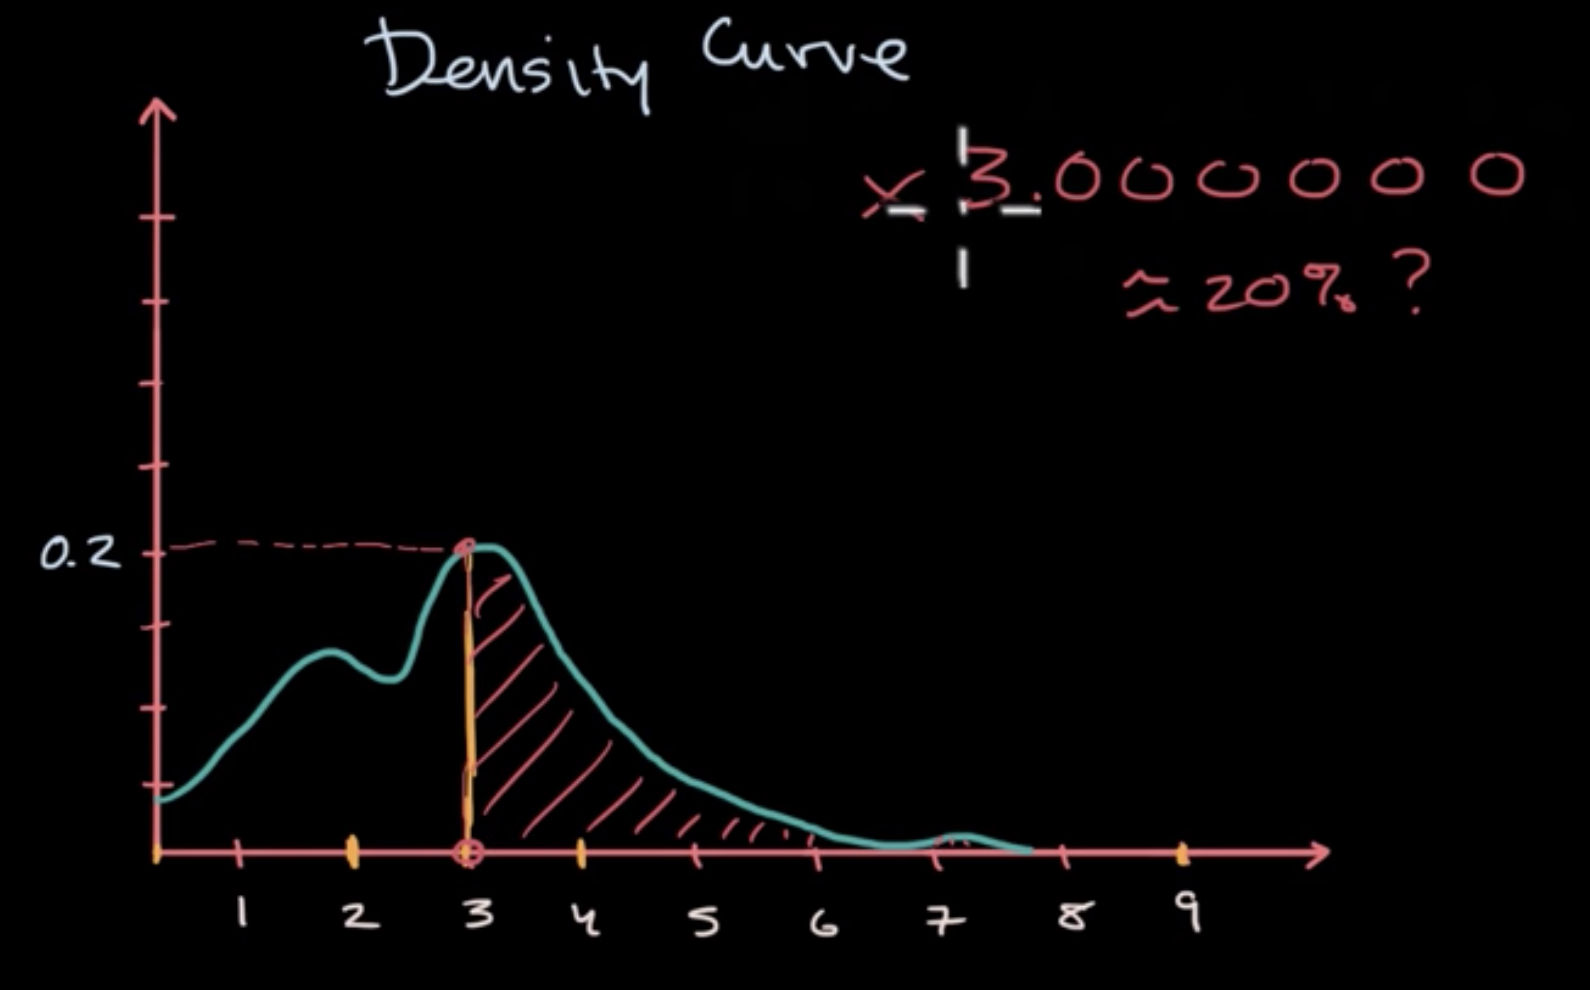 Density Curve
x 3.000000
≈ 20% ?
0.2
1 2 3 4 5 6 7 8 9